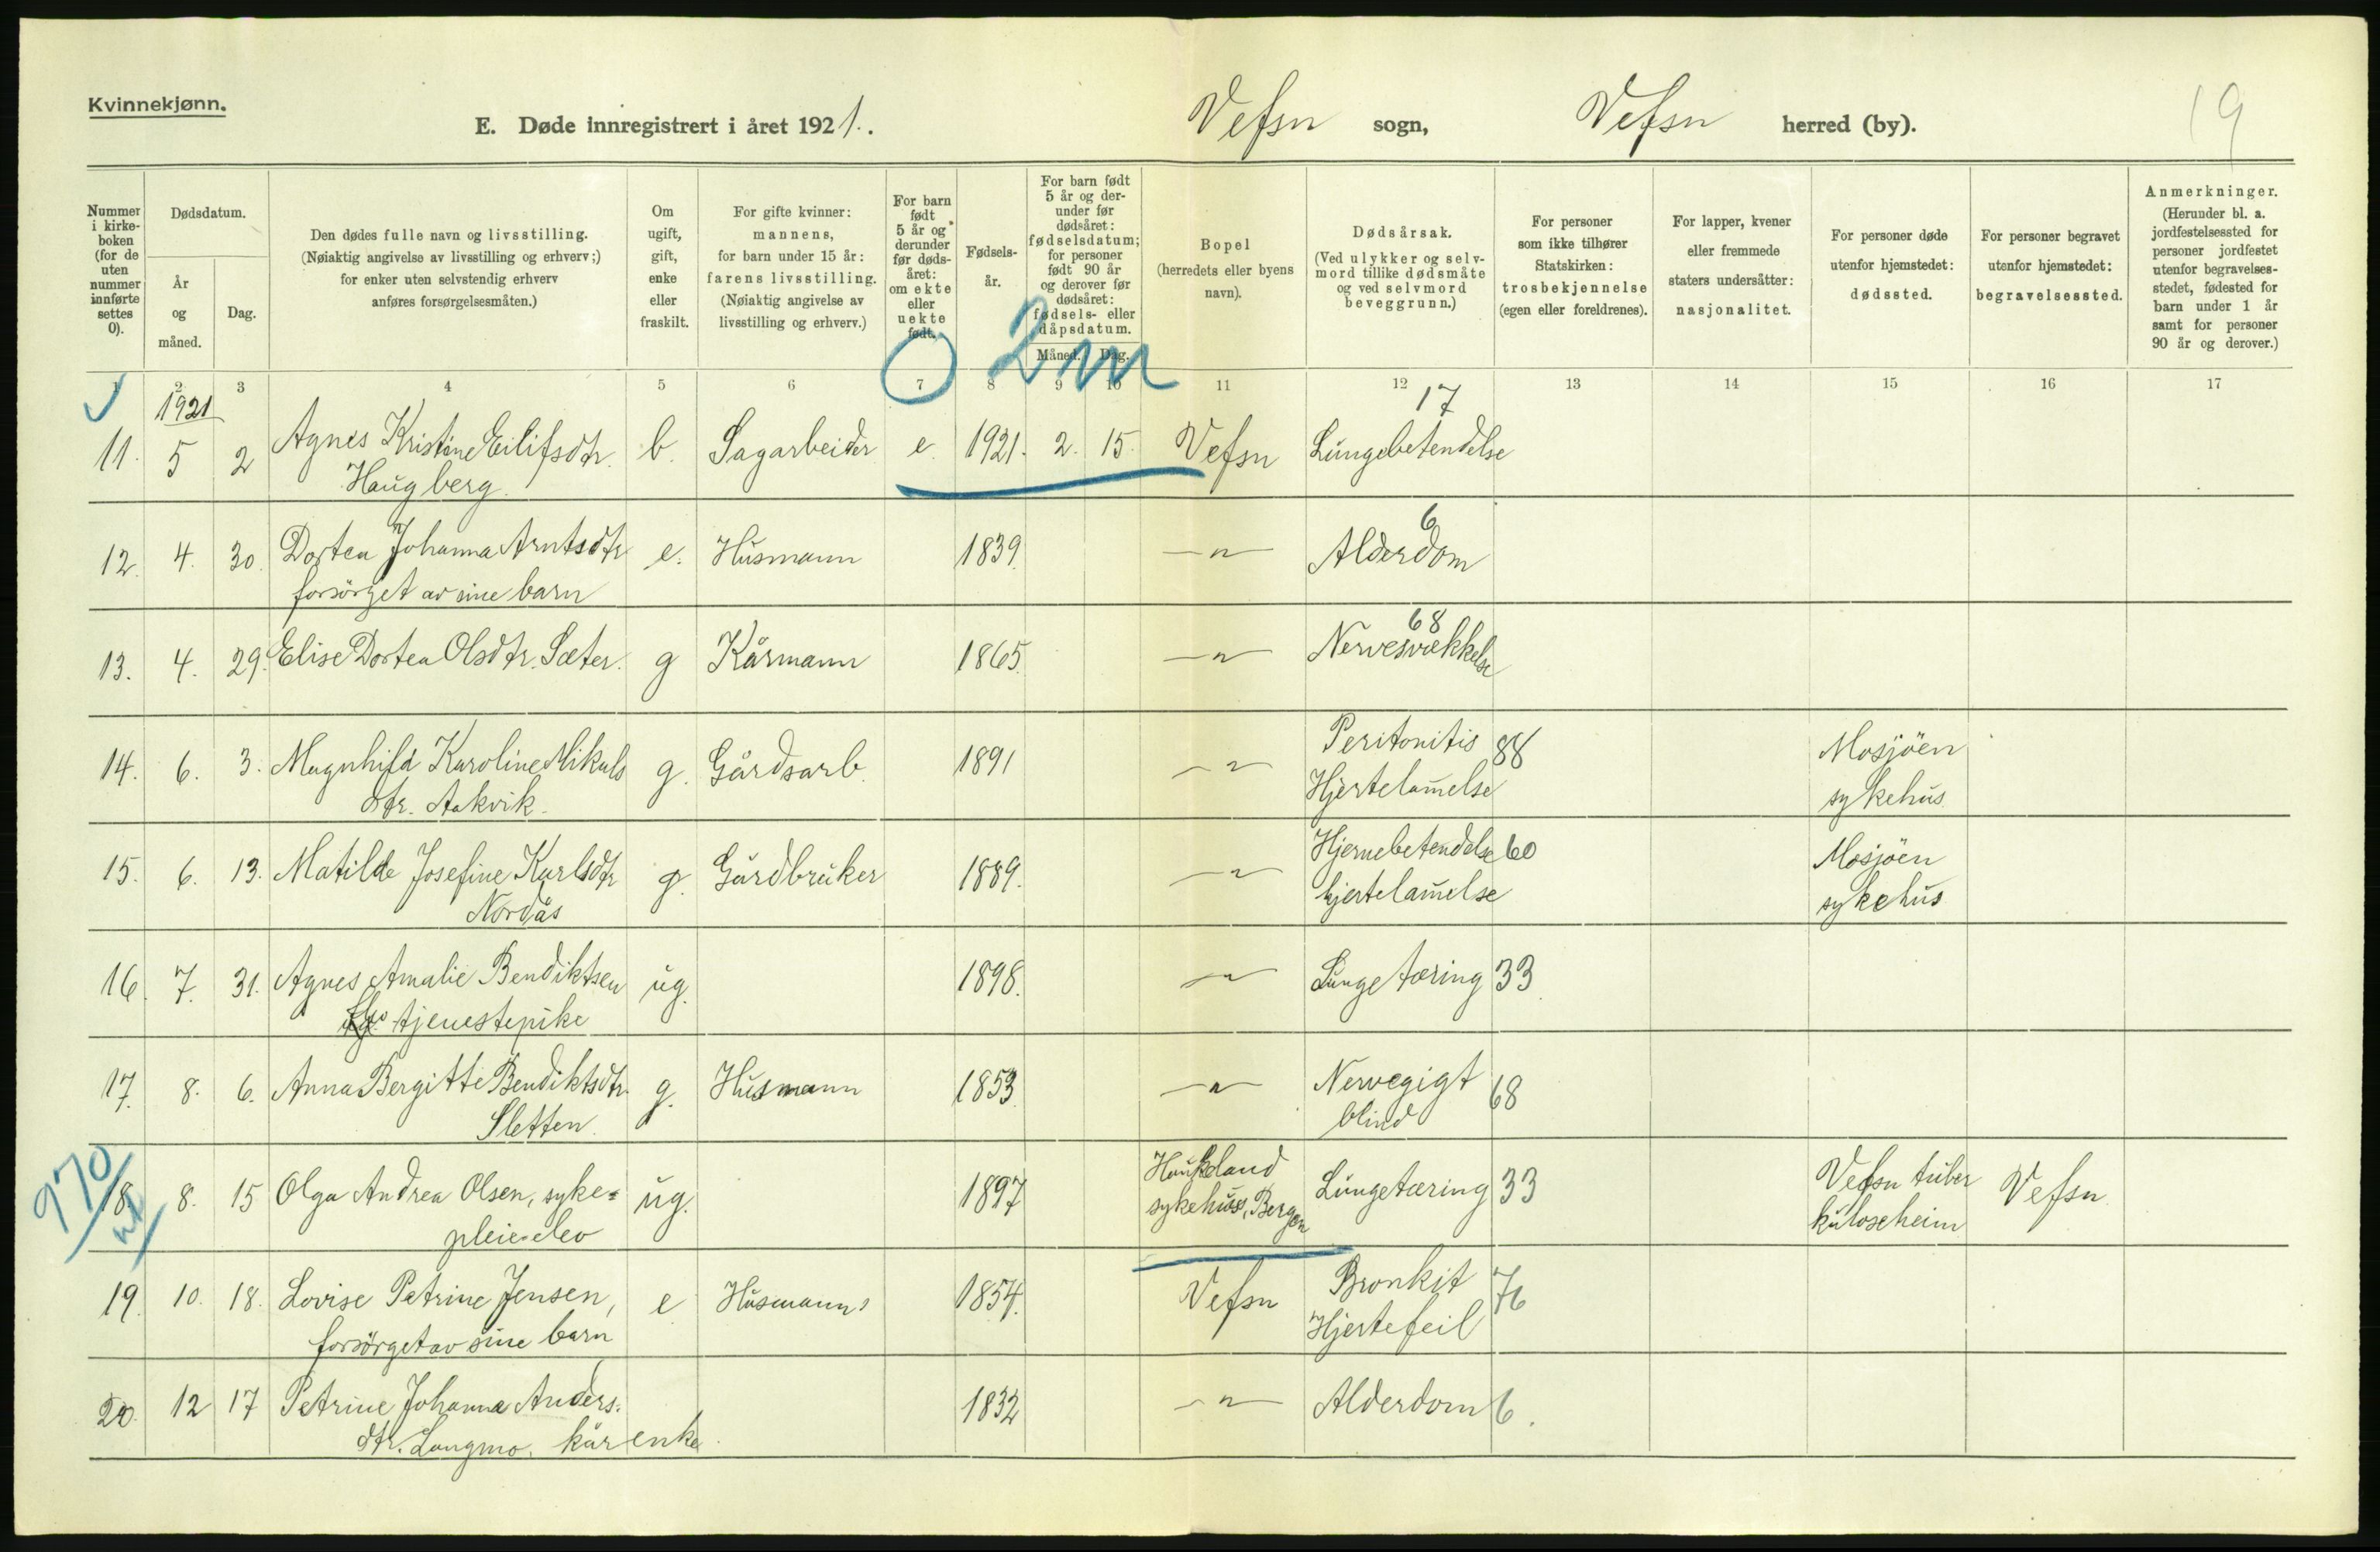 Kvinnekjønn.
E. Døde innregistrert i året 1921. Vefsn sogn, Vefsn herred (by). 19
Nummer i kirkeboken (for de uten nummer innførte settes 0).
Dødsdatum.
År og måned.
Dag.
Den dødes fulle navn og livsstilling.
(Nøiaktig angivelse av livsstilling og erhverv;)
for enker uten selvstendig erhverv
anføres forsørgelsesmåten.)
Om ugift, gift, enke eller fraskilt.
For gifte kvinner:
mannens,
for barn under 15 år:
farens livsstilling.
(Nøiaktig angivelse av
livsstilling og erhverv.)
For barn født 5 år og derunder før dødsåret: om ekte eller uekte født.
Fødselsår.
For barn født 5 år og derunder før dødsåret: fødselsdatum; for personer født 90 år og derover før dødsåret: fødsels- eller dåpsdatum.
Måned. Dag.
Bopel
(herredets eller byens navn).
Dødsårsak.
(Ved ulykker og selvmord tillike dødsmåte og ved selvmord beveggrunn.)
For personer som ikke tilhører Statskirken:
trosbekjennelse
(egen eller foreldrenes).
For lapper, kvener eller fremmede staters undersåtter:
nasjonalitet.
For personer døde utenfor hjemstedet:
dødssted.
For personer begravet utenfor hjemstedet:
begravelsessted.
Anmerkninger.
(Herunder bl. a. jordfestelsessted for personer jordfestet utenfor begravelsesstedet, fødested for barn under 1 år samt for personer 90 år og derover.)
0 2 m
1 2 3 4 5 6 7 8 9 10 11 12 13 14 15 16 17
1921
17
11. 5 2 Agnes Kristine Eilifsdtr. b. Sagarbeider e. 1921. 2. 15. Vefsn Lungebetendelse
Haugberg.
6
12. 4. 30. Dortea Johanna Arntsdtr e. Husmann 1839. —"— Alderdom
forsörget av sine barn
68
13. 4. 29. Elise Dortea Olsdtr. Sæter. g Kårmann 1865. —"— Nervesvækkelse
14. 6. 3. Magnhild Karoline Mikals g. Gårdsarb. 1891 —"— Peritonitis 88 Mosjöen
dtr. Aakvik. Hjertelam̄else sykehus
15. 6. 13. Matilde Josefine Karlsdtr g. Gårdbruker 1889. —"— Hjernebetendelse 60 Mosjöen
Nordås hjertelam̄else sykehus
16. 7. 31. Agnes Amalie Bendiktsen ug. 1898. —"— Lungetæring 33
tjenestepike
17. 8. 6. Anna Bergitte Bendiktsdtr. g. Husmann 1853 —"— Nervegigt 68
Sletten. blind
970
18. 8. 15 Olga Andrea Olsen, syke= ug. 1897 Haukeland Lungetæring 33 Vefsn tuber Vefsn
pleie-elev sykehus, Bergen kuloseheim
19. 10. 18. Lovise Petrine Jensen, e Husmanns 1854. Vefsn Bronkit 76
forsörget av sine barn Hjertefeil
20. 12 17 Petrine Johanna Anders. 1832 —"— Alderdom 6.
dtr. Langmo, kårenke.